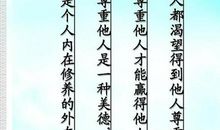 人都渴望得到他人尊
尊重他人才能赢得他人
尊重他人是一种美德，
是个人内在修养的外